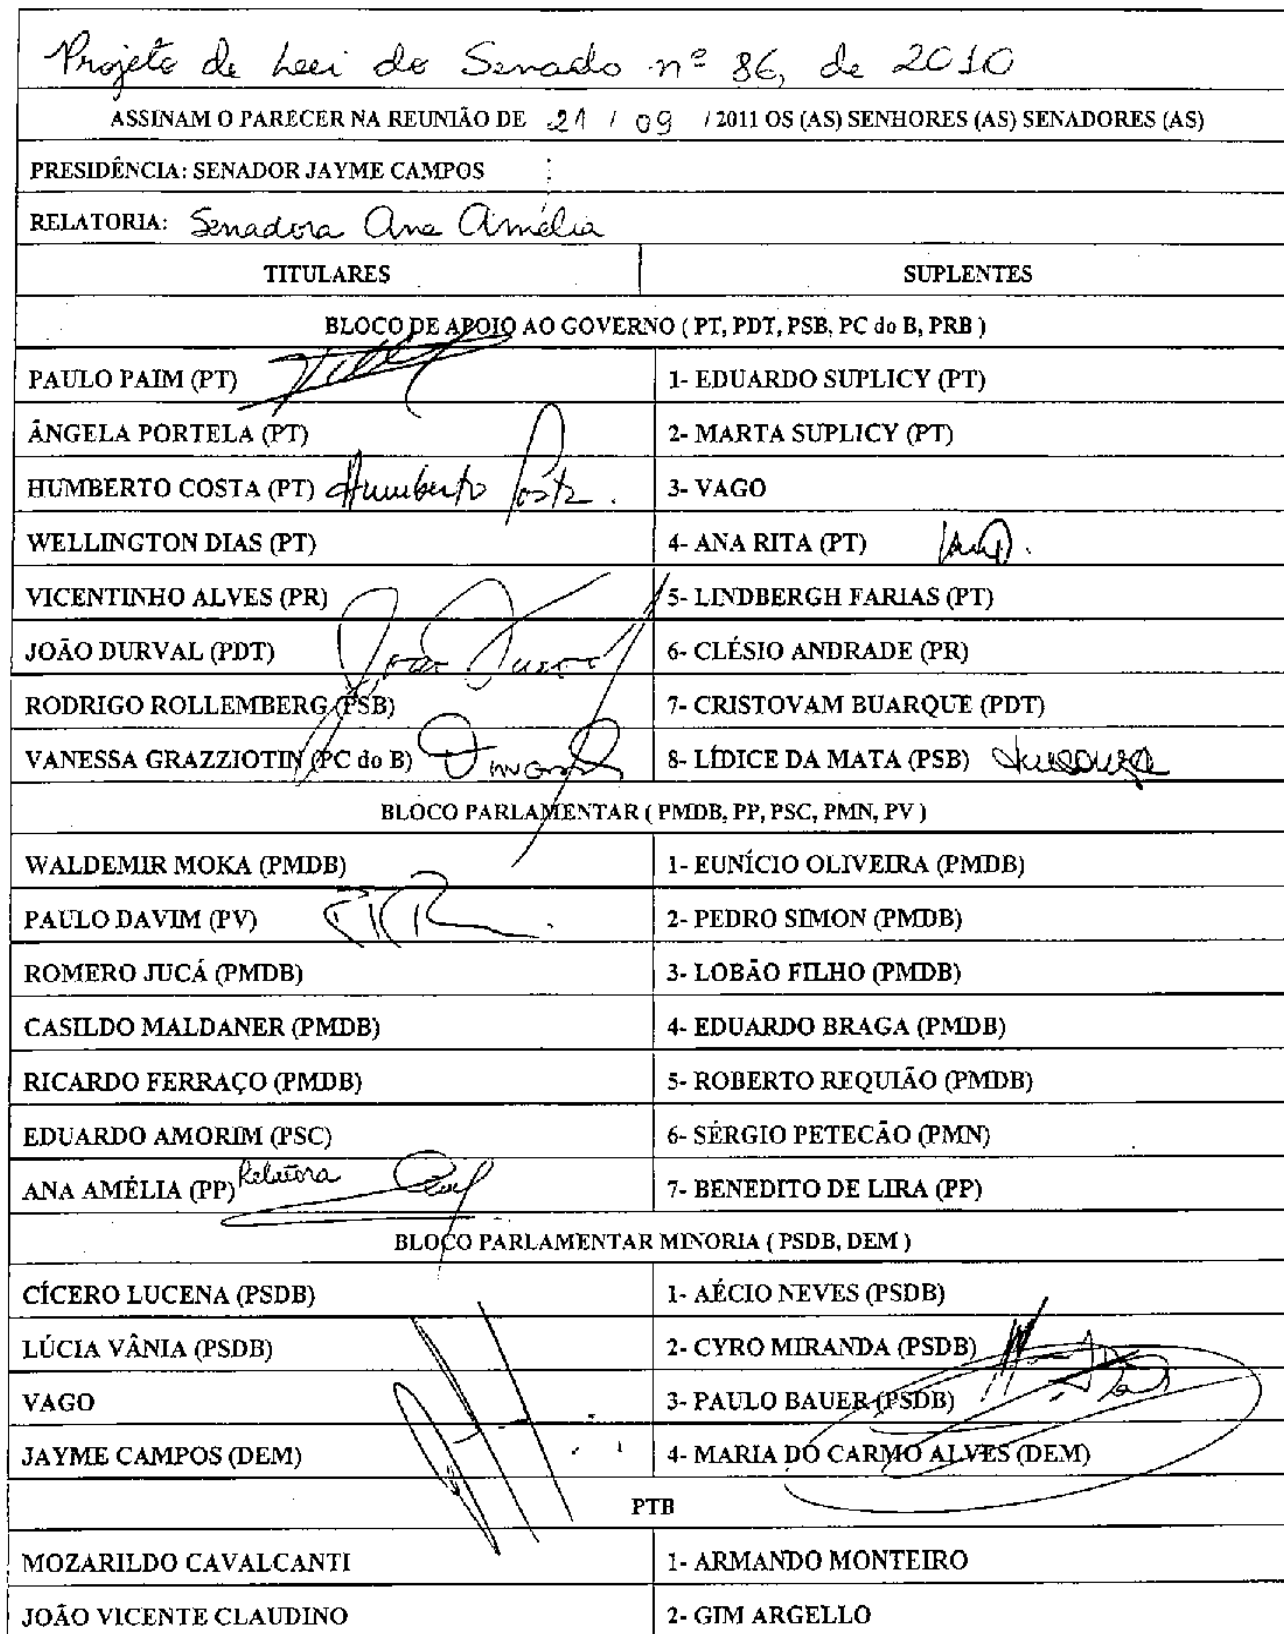 Projeto de Lei do Senado nº 86, de 2010
ASSINAM O PARECER NA REUNIÃO DE 21 / 09 / 2011 OS (AS) SENHORES (AS) SENADORES (AS)
PRESIDÊNCIA: SENADOR JAYME CAMPOS
RELATORIA: Senadora Ana Amélia
TITULARES SUPLENTES
BLOCO DE APOIO AO GOVERNO ( PT, PDT, PSB, PC do B, PRB )
PAULO PAIM (PT) 1- EDUARDO SUPLICY (PT)
ÂNGELA PORTELA (PT) 2- MARTA SUPLICY (PT)
HUMBERTO COSTA (PT) Humberto Costa. 3- VAGO
WELLINGTON DIAS (PT) 4- ANA RITA (PT)
VICENTINHO ALVES (PR) 5- LINDBERGH FARIAS (PT)
JOÃO DURVAL (PDT) João Durval 6- CLÉSIO ANDRADE (PR)
RODRIGO ROLLEMBERG (PSB) 7- CRISTOVAM BUARQUE (PDT)
VANESSA GRAZZIOTIN (PC do B) 8- LÍDICE DA MATA (PSB)
BLOCO PARLAMENTAR ( PMDB, PP, PSC, PMN, PV )
WALDEMIR MOKA (PMDB) 1- EUNÍCIO OLIVEIRA (PMDB)
PAULO DAVIM (PV) 2- PEDRO SIMON (PMDB)
ROMERO JUCÁ (PMDB) 3- LOBÃO FILHO (PMDB)
CASILDO MALDANER (PMDB) 4- EDUARDO BRAGA (PMDB)
RICARDO FERRAÇO (PMDB) 5- ROBERTO REQUIÃO (PMDB)
EDUARDO AMORIM (PSC) 6- SÉRGIO PETECÃO (PMN)
ANA AMÉLIA (PP) Relatora 7- BENEDITO DE LIRA (PP)
BLOCO PARLAMENTAR MINORIA ( PSDB, DEM )
CÍCERO LUCENA (PSDB) 1- AÉCIO NEVES (PSDB)
LÚCIA VÂNIA (PSDB) 2- CYRO MIRANDA (PSDB)
VAGO 3- PAULO BAUER (PSDB)
JAYME CAMPOS (DEM) 4- MARIA DO CARMO ALVES (DEM)
PTB
MOZARILDO CAVALCANTI 1- ARMANDO MONTEIRO
JOÃO VICENTE CLAUDINO 2- GIM ARGELLO